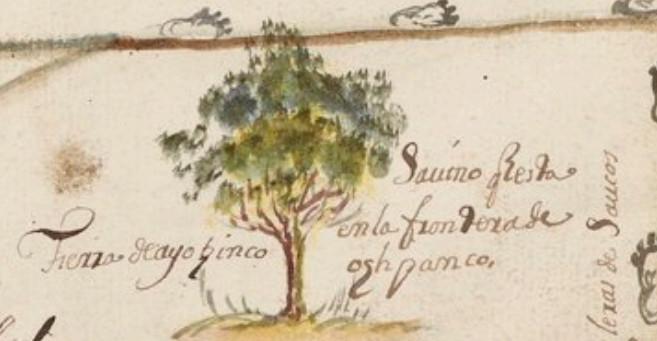 Tierra de ayotzinco
Sauino q̃ esta
en la frontera de
oshpanco.
leras de Saucos